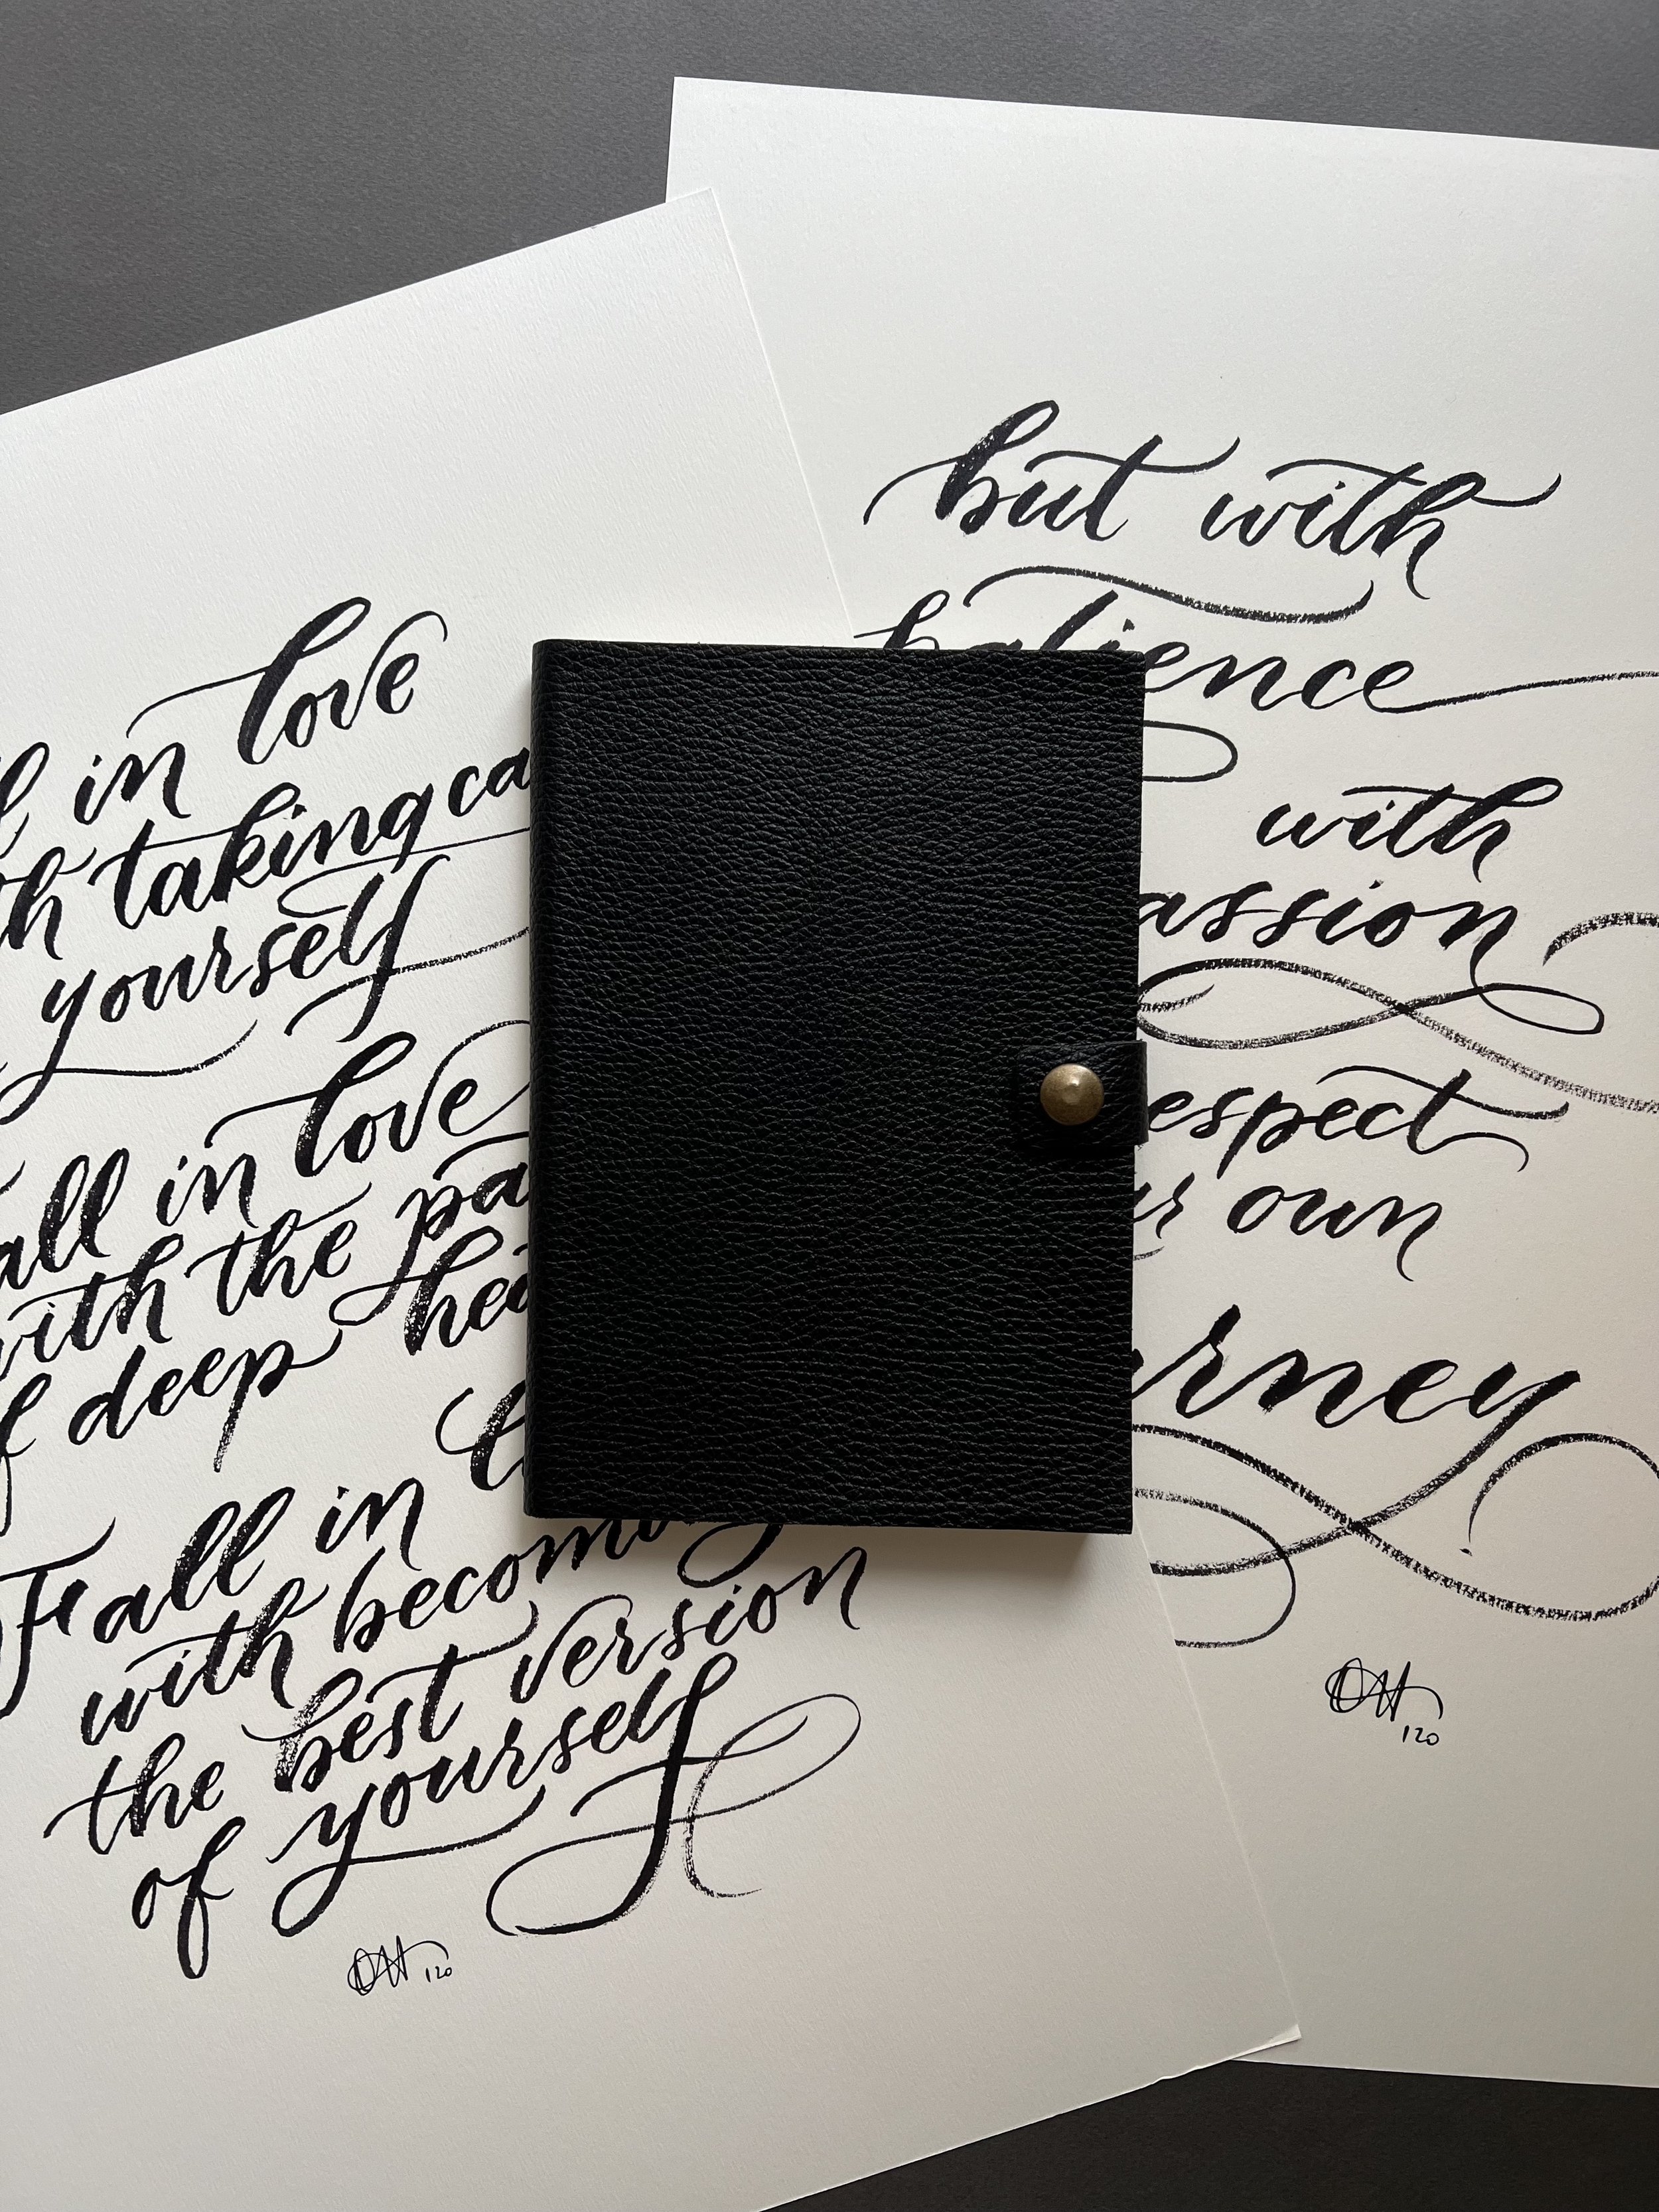 in love
taking ca
yourself
all in love
with the pa
deep hea
Fall in
with becoming
the best version
of yourself
120
but with
patience
with
assion
espect
ur own
rney
120